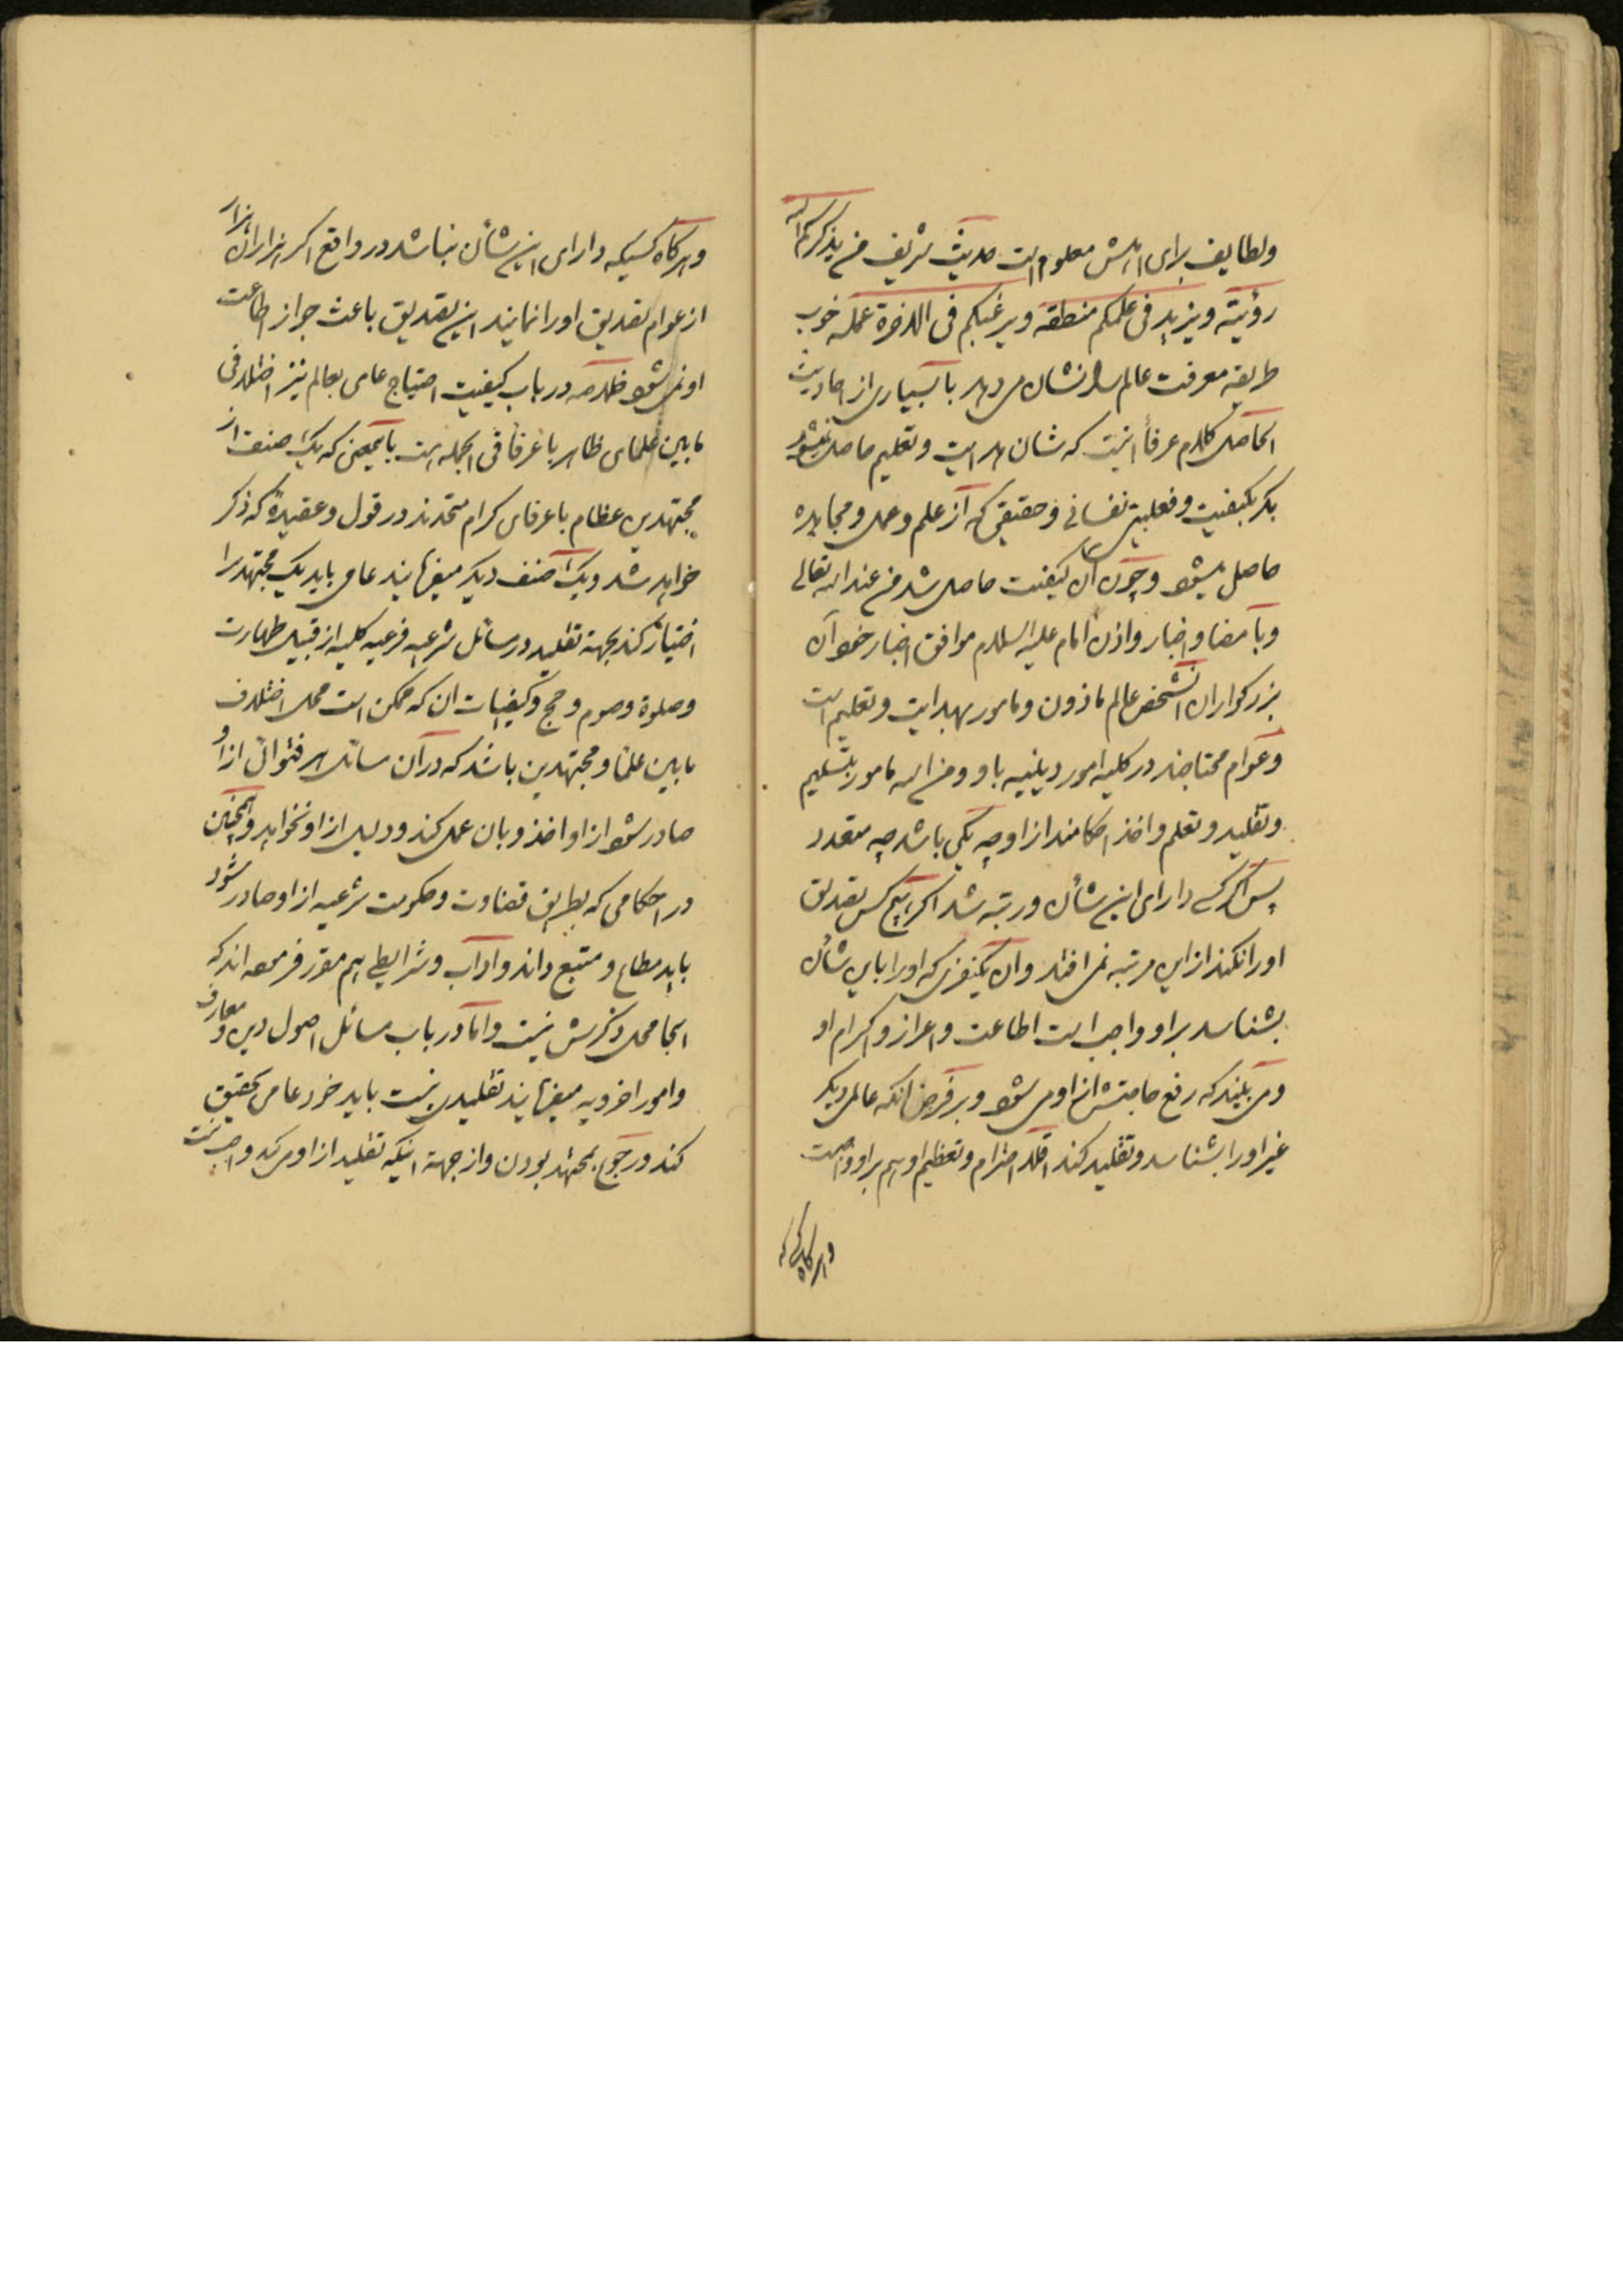 ولطایف برای اهلش معلوم است حدیث شریف من یذکرکم الله
رؤیته ویزید فی علمکم منطقه ویرغبکم فی الاخرة عمله خوب
طریقه معرفت عالم را نشان میدهد با بسیاری از احادیث
الحاصل کلام عرفا اینست که شان هدایت وتعلیم حاصل نمیشود
مکر بکیفیت وفعلیت نفسانی وحقیقی که از علم وعمل ومجاهده
حاصل میشود وچون آن کیفیت حاصل شد من عند الله تعالی
وبامضا واخبار واذن امام علیه السلام موافق اخبار خود آن
بزرکواران آنشخص عالم ماذون ومامور بهدایت وتعلیم است
وعوام محتاجند در کلیه امور دینیه باو ومن الله مامور بتسلیم
وتقلید وتعلم واخذ احکامند از او چه یکی باشد چه متعدد
پس اکر کسی دارای این شأن ورتبه شد اکر هیچ کس تصدیق
اورا نکند از این مرتبه نمی افتد وآن یکنفری که اورا باین شأن
بشناسد بر او واجب است اطاعت واعزاز واکرام او
ومی بیند که رفع حاجتش از او می شود وبر فرض آنکه عالمی دیکر
غیر اورا بشناسد وتقلید کند اقلا احترام وتعظیم او هم بر او واجبست
وهرکاه کسی که
وهرکاه کسیکه دارای این شأن نباشد در واقع اکر هزاران هزار
از عوام تصدیق اورا نمایند این تصدیق باعث جواز اطاعت
او نمی شود خلاصه در باب کیفیت احتیاج عامی بعالم نیز اختلافی
مابین علمای ظاهر با عرفا فی الجمله هست بایمعنی که یک صنف از
مجتهدین عظام با عرفای کرام متحدند در قول وعقیدهٔ که ذکر
خواهد شد ویک صنف دیکر میفرمایند عامی باید یک مجتهد را
اختیار کند بجهة تقلید در مسائل شرعیه فرعیه کلیه از قبیل طهارت
وصلوة وصوم وحج وکیفیات آن که ممکن است محل اختلاف
مابین علما ومجتهدین باشد که در آن مسائل هر فتوائی از او
صادر شود از او اخذ وبان عمل کند ودلیل از او نخواهد وهمچنین
در احکامی که بطریق قضاوت وحکومت شرعیه از او صادر شود
باید مطاع ومتبع داند وآداب وشرایطی هم مقرر فرموده اند که
اینجا محل ذکرش نیست واما در باب مسائل اصول دین ومعارف
وامور اخرویه میفرمایند تقلیدی نیست باید خود عامی تحقیق
کند ورجوع بمجتهد بودن واز جهة اینکه تقلید از او می کند واجب نیست